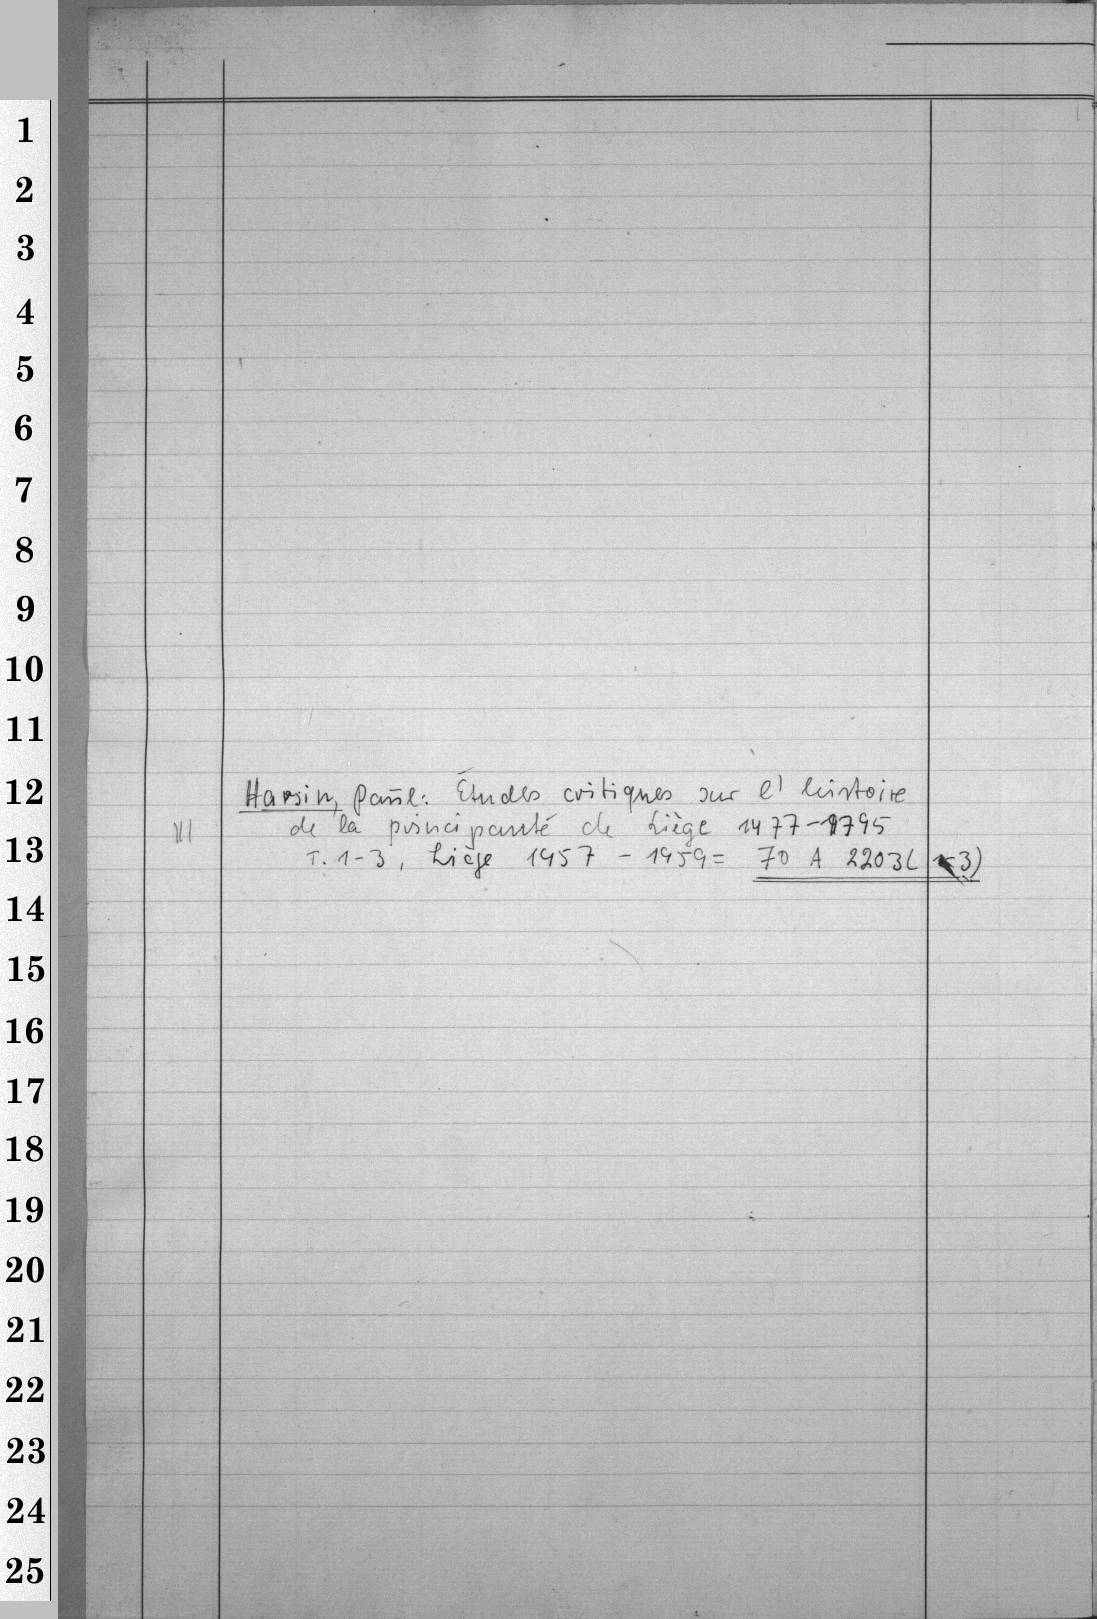 1
2
3
4
5
6
7
8
9
10
11
12
13
14
15
16
17
18
19
20
21
22
23
24
25
Harsin, Paul: Études critiques sur l'histoire
de la principauté de Liège 1477-1795
T. 1-3, Liège 1957 - 1959 = 70 A 2203(1-3)